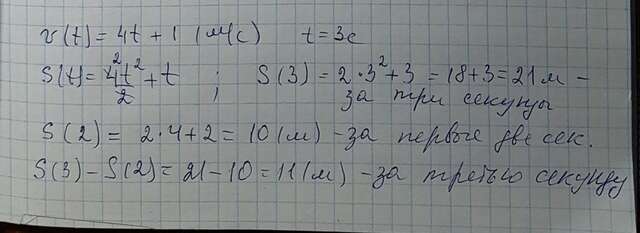 v(t) = 4t + 1 (м/с) t = 3с
S(t) = 4t²/2 + t ; S(3) = 2·3² + 3 = 18 + 3 = 21 м –
за три секунды
S(2) = 2·4 + 2 = 10 (м) – за первые две сек.
S(3) – S(2) = 21 – 10 = 11 (м) – за третью секунду